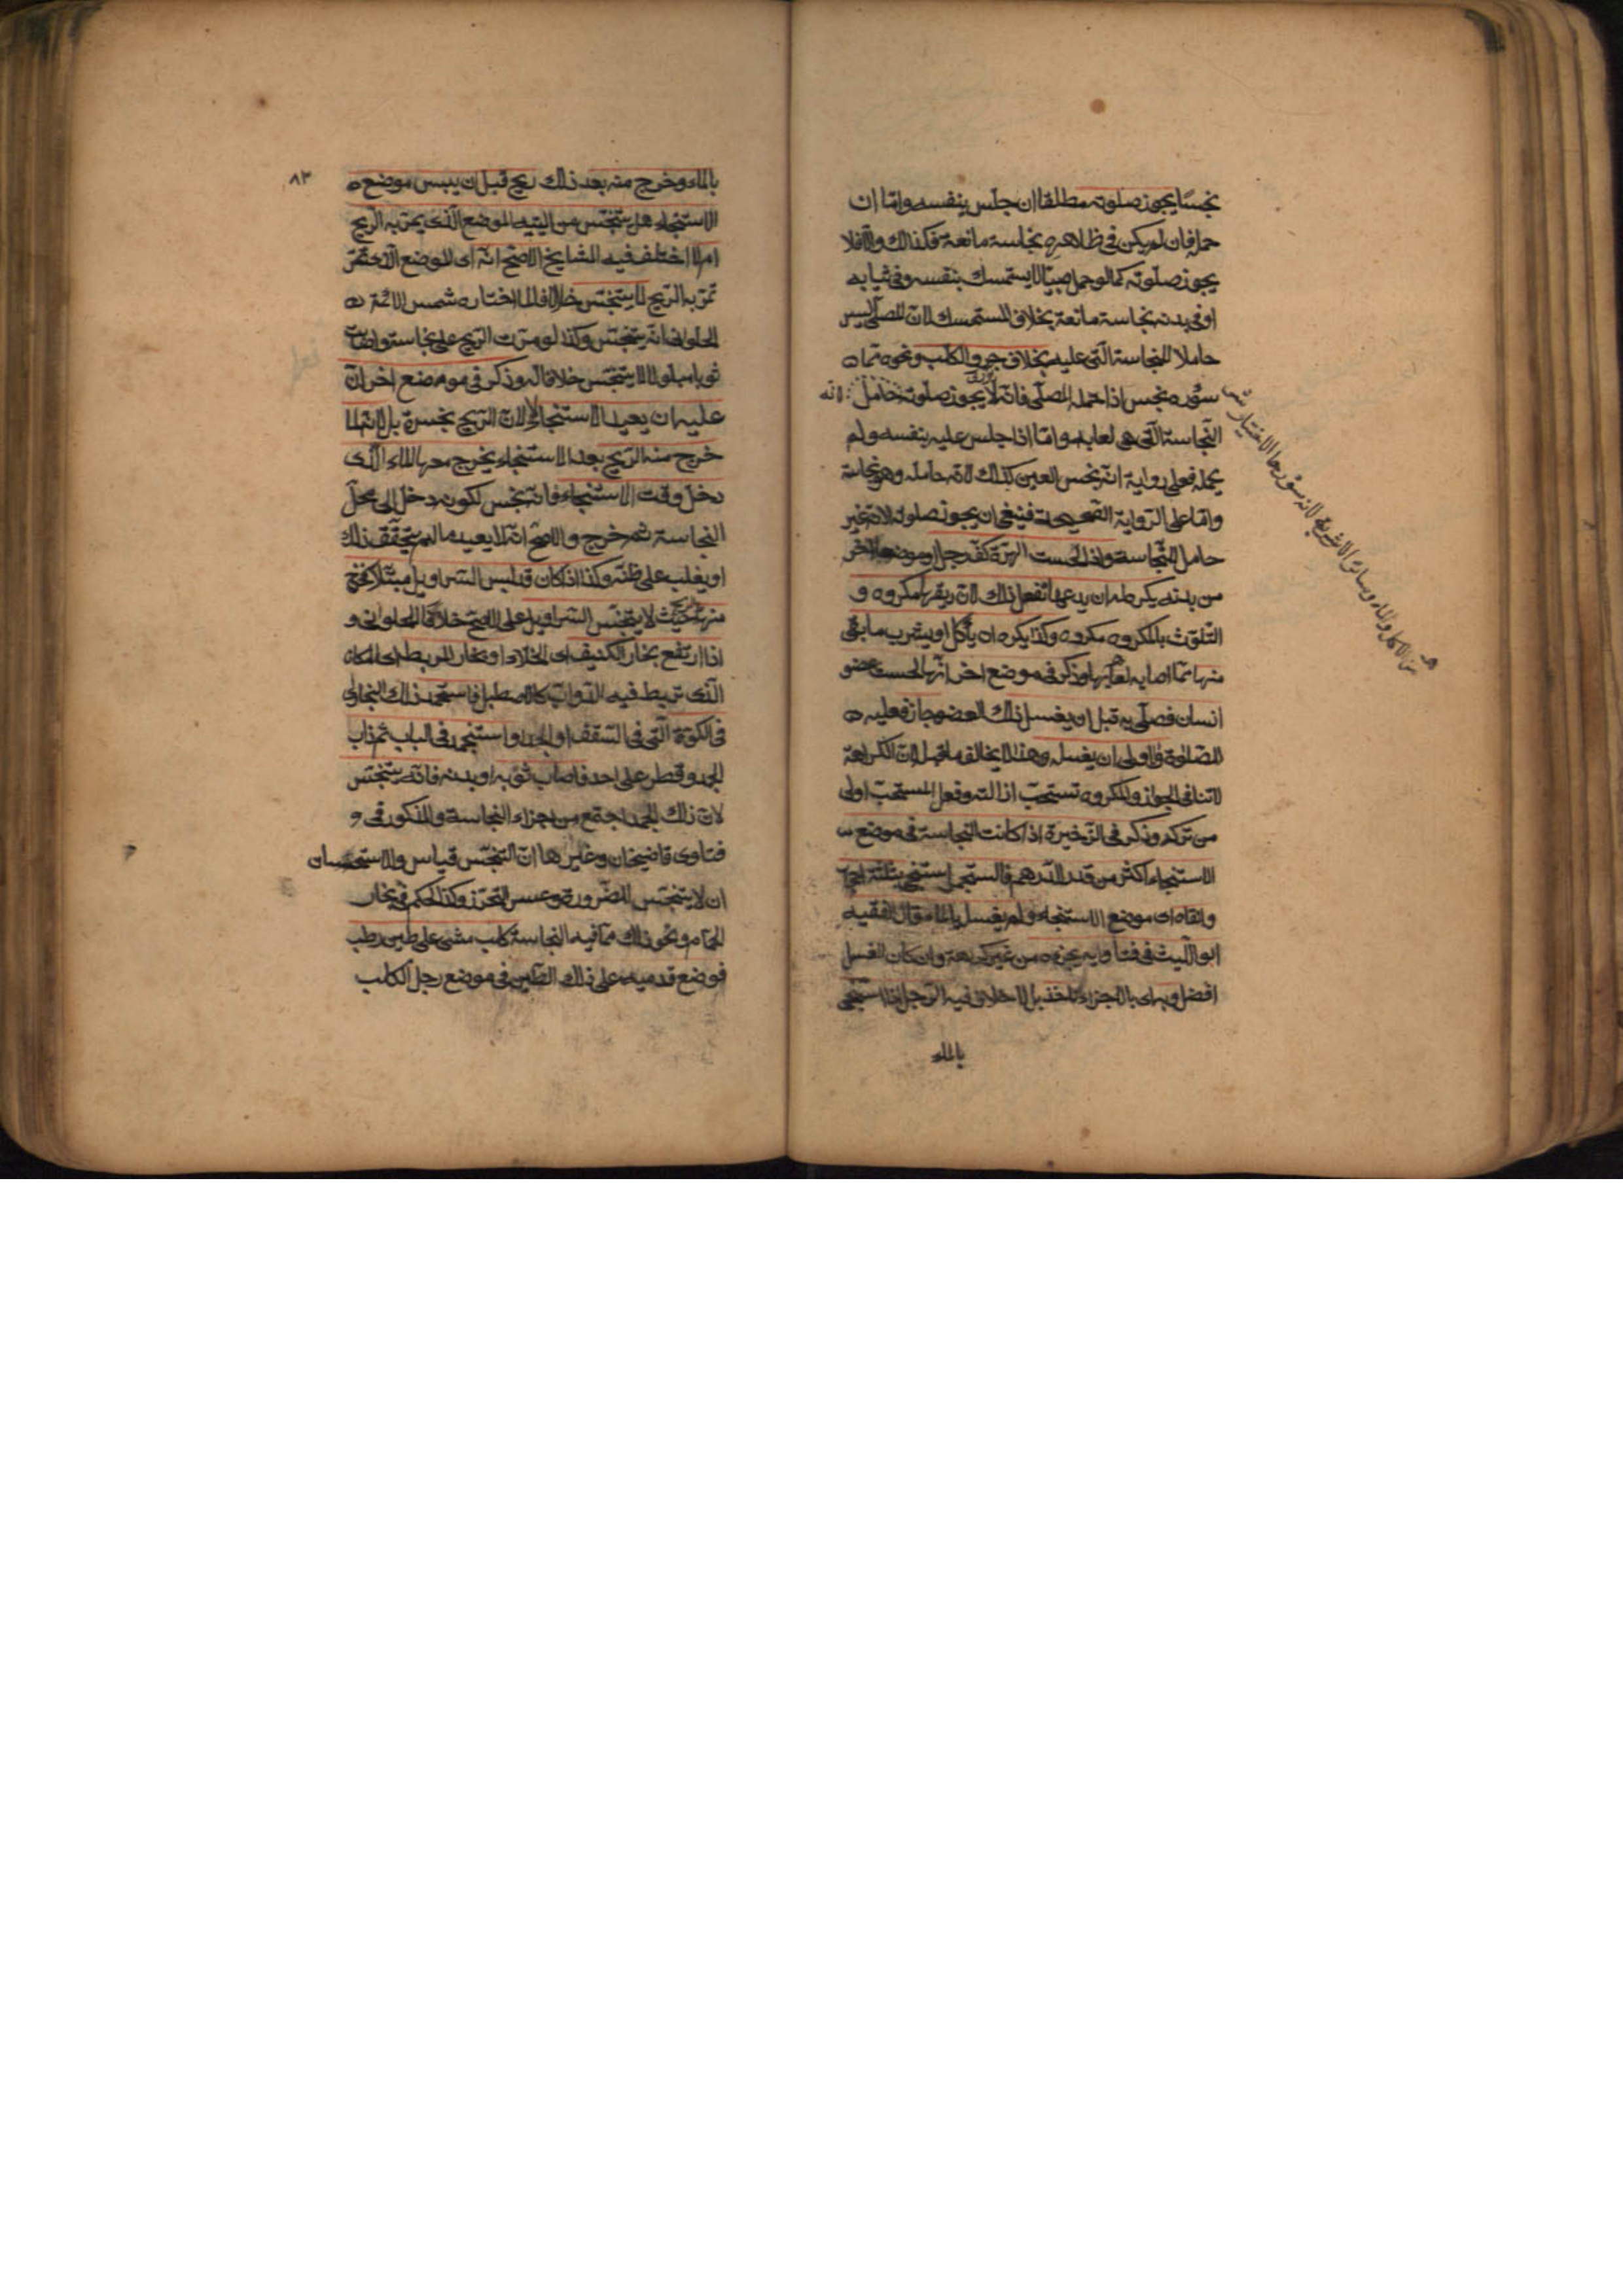 نجسًا يجوز صلوته مطلقا ان جلس بنفسه وامّا ان
حمله فان لم يكن فى ظاهره نجاسة مانعة فكذلك والّا فلا
يجوز صلوته كما لو حمل صبيّا لا يستمسك بنفسه وفى ثيابه
او فى بدنه نجاسة مانعة بخلاف المستمسك لانّ المصلّى ليس
حاملا للنجاسة الّتى عليه بخلاف جرو الكلب ونحوه ممّا
سؤره نجس اذا حمله المصلّى فانّه لا يجوز صلوته لانّه حامل
النّجاسة الّتى هى لعابه وامّا اذا جلس عليه بنفسه ولم
يحمله فعلى رواية انّه نجس العين كذلك لانّه حامله وهو نجاسة
وامّا على الرّواية الصّحيحة فينبغى ان يجوز صلوته لانّه غير
حامل للنّجاسة واذا لحست الهرّة كفّ رجل او موضعا اخر
من بدنه يكره له ان يدعها تفعل ذلك لانّ ريقها مكروه و
التّلوّث بالمكروه مكروه وكذا يكره ان يأكل او يشرب ما بقى
منها ممّا اصابه لعابها وذكر فى موضع اخر انّها لحست عضو
انسان فصلّى به قبل ان يغسل ذلك العضو جاز فعليه
الصّلوة والاولى ان يغسله وهذا لا يخالف ما قبله لانّ الكراهة
لا تنافى الجواز والمكروه تستحبّ ازالته وفعل المستحبّ اولى
من تركه وذكر فى الذّخيرة اذا كانت النّجاسة فى موضع
الاستنجاء اكثر من قدر الدّرهم فاستجمر استنجى بثلثة احجار
وانقاه اى موضع الاستنجاء ولم يغسله بالماء قال الفقيه
ابو اللّيث فى فتاوايه يجزيه من غير كراهة وان كان الغسل
افضل وبه اى بالاجزاء ناخذ بلا خلاف فيه الرّجل اذا استنجى
بالماء
٨٣
بالماء وخرج منه بعد ذلك ريح قبل ان ييبس موضع
الاستنجاء هل يتنجّس من اليتيه الموضع الّذى يمرّ به الرّيح
ام لا اختلف فيه المشايخ الاصحّ انّه اى الموضع الّذى
تمرّ به الرّيح لا يتنجّس خلافا لما اختاره شمس الائمّة
الحلوانى انّه يتنجّس وكذا لو مرّت الرّيح على نجاسة واصابت
ثوبا مبلولا لا يتنجّس خلافا له وذكر فى موضع اخر انّ
عليه ان يعيد الاستنجاء لا لانّ الرّيح نجسة بل لانّه لمّا
خرج منه الرّيح بعد الاستنجاء يخرج معها الماء الّذى
دخل وقت الاستنجاء فانّه نجس لكونه دخل الى محلّ
النجاسة ثم خرج والاصحّ انّه لا يعيد ما لم يتحقّق ذلك
او يغلب على ظنّه وكذا اذا كان قد لبس السّراويل مبتلّا فخرج
منه ريح حيث لا يتنجّس السّراويل على الاصحّ خلافا للحلوانى و
اذا ارتفع بخار الكنيف اى الخلاء او بخار المربط اى المكان
الّذى تربط فيه الدّوابّ كالاصطبل فاستجمد ذلك البخار اى
فى الكوّة الّتى فى السّقف او الجدر واستنجمد فى الباب ثم ذاب
الجمد وقطر على احد فاصاب ثوبه او بدنه فانّه يتنجّس
لانّ ذلك الجمد اجتمع من اجزاء النجاسة والمذكور فى و
فتاوى قاضيخان وغيرها انّ التنجّس قياس والاستحسان
ان لا يتنجّس للضّرورة وعسر التحرّز وكذا الحكم فى بخار
الحمّام ونحو ذلك ممّا فيه النجاسة كلب مشى على طين رطب
فوضع قدميه على ذلك الطّين فى موضع رجل الكلب